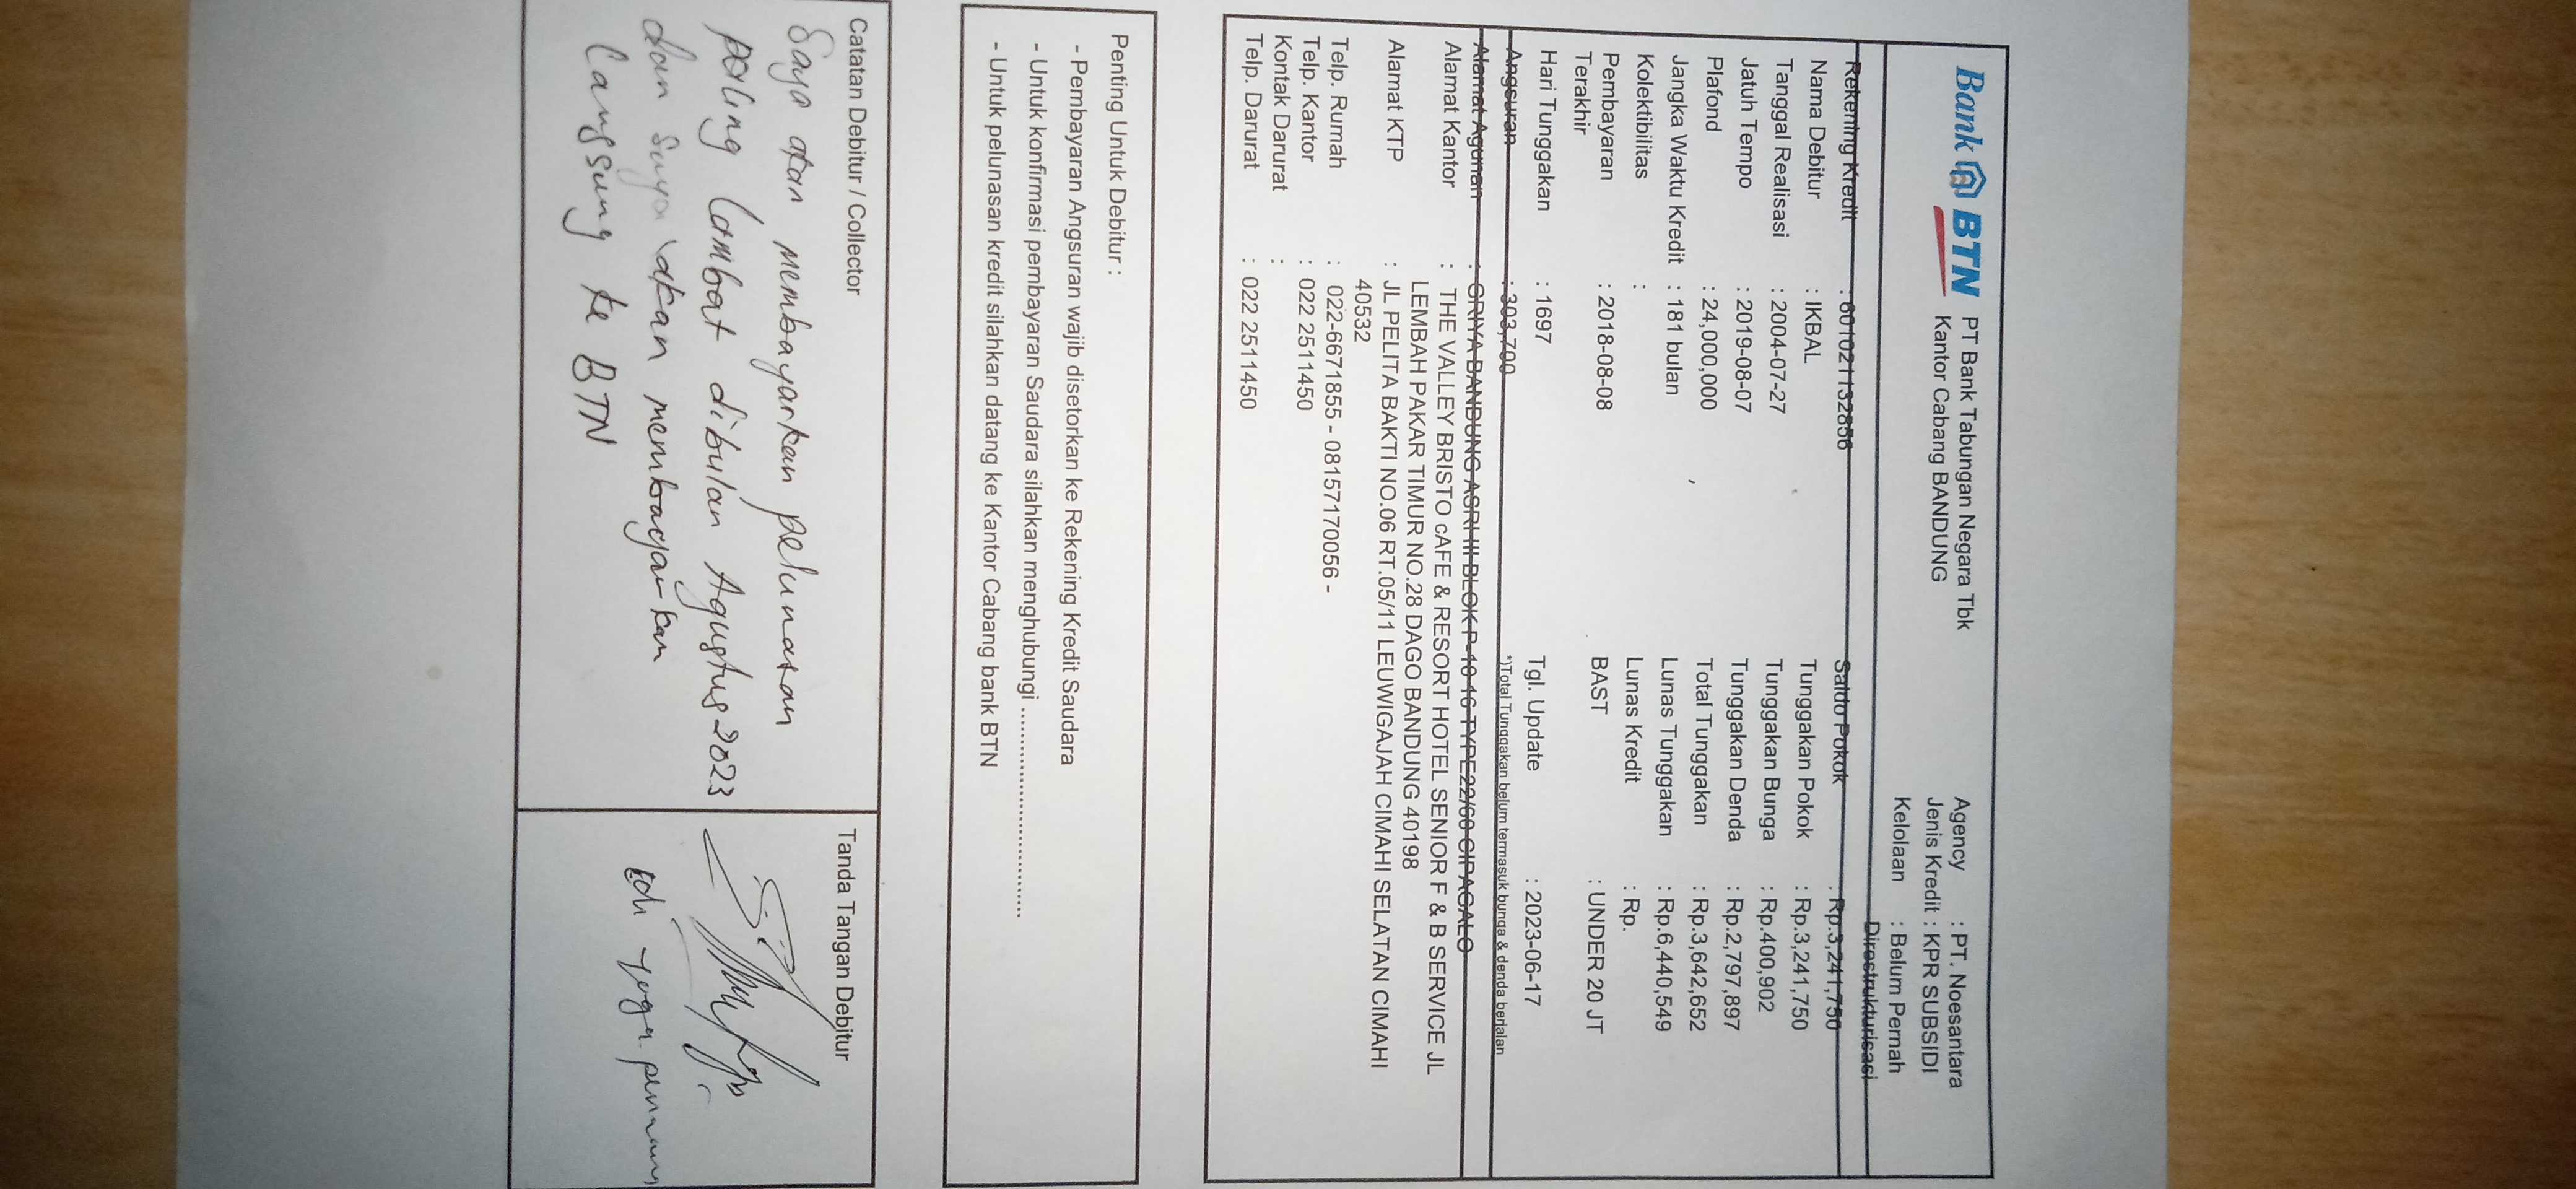 Bank BTN
PT Bank Tabungan Negara Tbk
Kantor Cabang BANDUNG
Agency : PT. Noesantara
Jenis Kredit : KPR SUBSIDI
Kelolaan : Belum Pernah
Direstrukturisasi
Rekening Kredit : 601021132856
Nama Debitur : IKBAL
Tanggal Realisasi : 2004-07-27
Jatuh Tempo : 2019-08-07
Plafond : 24,000,000
Jangka Waktu Kredit : 181 bulan
Kolektibilitas :
Pembayaran : 2018-08-08
Terakhir
Hari Tunggakan : 1697
Angsuran : 303,700
Saldo Pokok : Rp.3,241,750
Tunggakan Pokok : Rp.3,241,750
Tunggakan Bunga : Rp.400,902
Tunggakan Denda : Rp.2,797,897
Total Tunggakan : Rp.3,642,652
Lunas Tunggakan : Rp.6,440,549
Lunas Kredit : Rp.
BAST : UNDER 20 JT
Tgl. Update : 2023-06-17
*)Total Tunggakan belum termasuk bunga & denda berjalan
Alamat Agunan : GRIYA BANDUNG ASRI III BLOK P-10 16 TYPE22/60 CIPAGALO
Alamat Kantor : THE VALLEY BRISTO cAFE & RESORT HOTEL SENIOR F & B SERVICE JL
LEMBAH PAKAR TIMUR NO.28 DAGO BANDUNG 40198
Alamat KTP : JL PELITA BAKTI NO.06 RT.05/11 LEUWIGAJAH CIMAHI SELATAN CIMAHI
40532
Telp. Rumah : 022-6671855 - 081571700056 -
Telp. Kantor : 022 2511450
Kontak Darurat :
Telp. Darurat : 022 2511450
Penting Untuk Debitur :
- Pembayaran Angsuran wajib disetorkan ke Rekening Kredit Saudara
- Untuk konfirmasi pembayaran Saudara silahkan menghubungi ..............................
- Untuk pelunasan kredit silahkan datang ke Kantor Cabang bank BTN
Catatan Debitur / Collector
Saya akan membayarkan pelunasan
paling lambat dibulan Agustus 2023
dan saya akan membayarkan
langsung ke BTN
Tanda Tangan Debitur